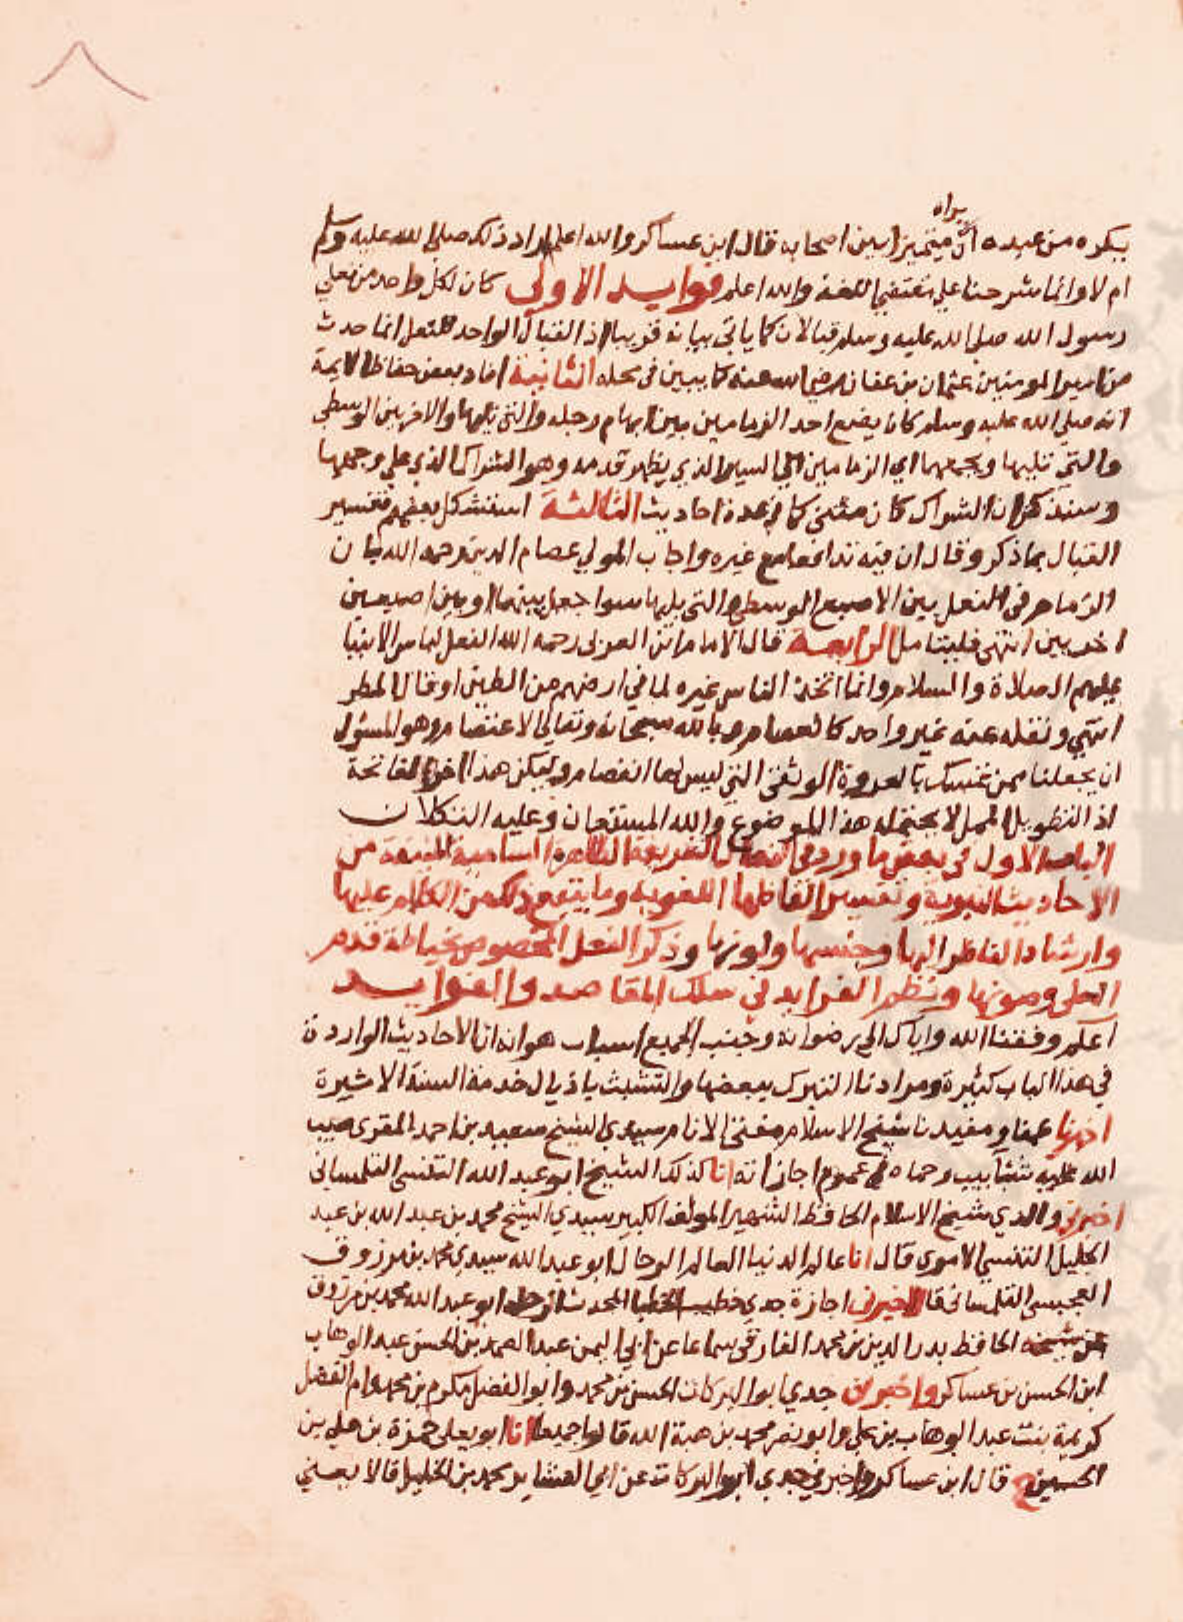 يراه
يكره من عبده ان متميزا بين اصحابه قال ابن عساكر والله اعلم اراد ذلك صلى الله عليه وسلم
ام لا وانما شرحنا على مقتضى اللغة والله اعلم فوايد الاولى كان لكل واحد من نعلي
رسول الله صلى الله عليه وسلم قبالان كما ياتي بيانه قريبا اذ القبال الواحد للنعل انما حدث
من امير المومنين عثمان بن عفان رضي الله عنه كما يبين في محله الثانية افاد بعض حفاظ الايمة
انه صلى الله عليه وسلم كان يضع احد الزمامين بين ابهام رجله والتي تليها والاخر بين الوسطى
والتي تليها ويجمعهما اي الزمامين الى السير الذي يظهر قدمه وهو الشراك الذي على وجهها
وسنذكر ان الشراك كان مثنى كما في عدة احاديث الثالثة استشكل بعضهم تفسير
القبال بما ذكر وقال ان فيه تدافعا مع غيره واجاب المولى عصام الدين رحمه الله بان
الزمام في النعل بين الاصبع الوسطى والتي يليها سوا جعل بينهما او بين اصبعين
اخريين انتهى فليتامل الرابعة قال الامام ابن العربى رحمه الله النعل لباس الانبيا
عليهم الصلاة والسلام وانما اتخذ الناس غيره لما في ارضهم من الطين او قال المطر
انتهى ونقله عنه غير واحد كالعصام وبالله سبحانه وتعالى الاعتصام وهو المسئول
ان يجعلنا ممن تمسك بالعروة الوثقى التي ليس لها انفصام وليكن هذا اخر الفاتحة
اذ التطويل الممل لا يحتمله هذا الموضوع والله المستعان وعليه التكلان
الباب الاول في بعض ما ورد في النعال الشريفة الطاهرة السامية المنيفة من
الاحاديث النبوية وتفسير الفاظها اللغوية وما يتبع ذلك من الكلام عليها
وارشاد الناظر اليها وجنسها ولونها وذكر النعل المخصوص بخياطة قدم
العلى وصونها ونظم الفرايد في سلك المقاصد والفوايد
اعلم وفقنا الله واياك الى رضوانه وجنب الجميع اسباب هوانه ان الاحاديث الواردة
في هذا الباب كثيرة ومرادنا التبرك ببعضها والتشبث باذيال خدمة السنة الاثيرة
اخبرنا عمنا ومفيدنا شيخ الاسلام مفتي الانام سيدي الشيخ سعيد بن احمد المقرى صيب
الله عليه شئابيب رحماه في عموم اجازاته انا كذلك الشيخ ابو عبد الله التنسي التلمسانى
اخبرني والدي شيخ الاسلام الحافظ الشهير المولف الكبير سيدي الشيخ محمد بن عبد الله بن عبد
الجليل التنسي الاموي قال انا عالم الدنيا العالم الرحال ابو عبد الله سيدي محمد بن مرزوق
العجيسى التلمسانى قال اخبرنى اجازة جدي خطيب الخطبا المحدث الرحلة ابو عبد الله محمد بن مرزوق
عن شيخه الحافظ بدر الدين بن محمد الفارقى سماعا عن ابي اليمن عبد الصمد بن الحسن عبد الوهاب
ابن الحسن بن عساكر واخبرنى جدي ابو البركات الحسن بن محمد وابو الفضل مكرم بن محمد وام الفضل
كريمة بنت عبد الوهاب بن علي وابو نصر محمد بن هبة الله قالوا جميعا انا ابو يعلى حمزة بن علي بن
الحسين ح قال ابن عساكر واخبرني جدي ابو البركات عن ابي العشاير محمد بن الخليل قالا بعسني